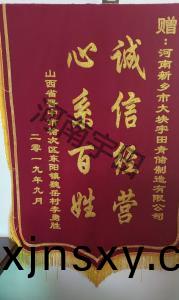 赠：河南新乡市大块宇田青储制造有限公司
诚信经营
心系百姓
山西省晋中市榆次区东阳镇魏岳村李勇胜
二零一九年九月
河南宇田
xjnsxy.c